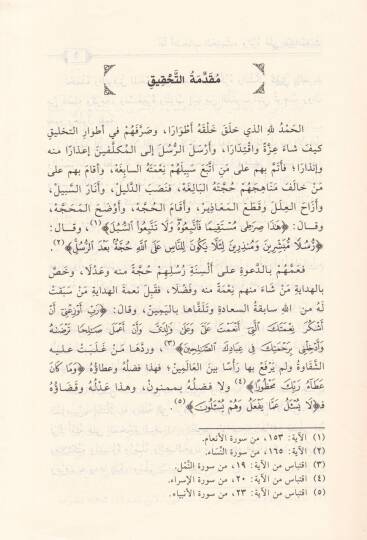 مُقَدِّمَةُ التَّحْقِيقِ
الحَمْدُ للهِ الذي خَلَقَ خَلْقَهُ أَطْوَارًا، وصَرَّفَهُمْ في أطوارِ التخليقِ
كيفَ شاءَ عِزَّةً واقْتِدَارًا، وأَرْسَلَ الرُّسُلَ إلى المُكلَّفينَ إعذارًا منه
وإنذارًا؛ فأَتَمَّ بهم على مَنِ اتَّبَعَ سبِيلَهُمْ نِعْمَتَهُ السابِغَة، وأقامَ بهم على
مَنْ خالَفَ مَنَاهِجَهُمْ حُجَّتَهُ البالِغَة، فنَصَبَ الدَّليلَ، وأَنَارَ السَّبيلَ،
وأَزَاحَ العِلَلَ وقَطَعَ المَعاذِيرَ، وأقامَ الحُجَّة، وأَوْضَحَ المَحَجَّة،
وقال: ﴿هَٰذَا صِرَٰطِى مُسْتَقِيمًا فَٱتَّبِعُوهُ وَلَا تَتَّبِعُوا۟ ٱلسُّبُلَ﴾(١)، وقال:
﴿رُّسُلًا مُّبَشِّرِينَ وَمُنذِرِينَ لِئَلَّا يَكُونَ لِلنَّاسِ عَلَى ٱللَّهِ حُجَّةٌۢ بَعْدَ ٱلرُّسُلِ﴾(٢).
فعَمَّهُمْ بالدَّعوةِ على ألسِنَةِ رُسُلِهِمْ حُجَّةً منه وعَدْلًا، وخَصَّ
بالهِدايةِ مَنْ شَاءَ منهم نِعْمَةً منه وفَضْلًا، فقَبِلَ نعمةَ الهدايةِ مَنْ سَبَقَتْ
لَهُ من اللهِ سابقةُ السعادةِ وتَلَقَّاها باليَمِينَ، وقالَ: ﴿رَبِّ أَوْزِعْنِىٓ أَنْ
أَشْكُرَ نِعْمَتَكَ ٱلَّتِىٓ أَنْعَمْتَ عَلَىَّ وَعَلَىٰ وَٰلِدَىَّ وَأَنْ أَعْمَلَ صَٰلِحًا تَرْضَىٰهُ
وَأَدْخِلْنِى بِرَحْمَتِكَ فِى عِبَادِكَ ٱلصَّٰلِحِينَ﴾(٣)، وردَّها مَنْ غَلَبَتْ عليه
الشَّقاوةُ ولم يَرْفَعْ بها رَأْسًا بينَ العالَمِينَ؛ فهذا فضلُهُ وعطاؤُه ﴿وَمَا كَانَ
عَطَآءُ رَبِّكَ مَحْظُورًا﴾(٤) ولا فضلُه بممنونٍ، وهذا عَدْلُهُ وقَضَاؤُه
فـ﴿لَا يُسْـَٔلُ عَمَّا يَفْعَلُ وَهُمْ يُسْـَٔلُونَ﴾(٥).
(١) الآية: ١٥٣، من سورة الأنعام.
(٢) الآية: ١٦٥، من سورة النِّسَاء.
(٣) اقتباس من الآية: ١٩، من سورة النَّمْل.
(٤) اقتباس من الآية: ٢٠، من سورة الإسراء.
(٥) اقتباس من الآية: ٢٣، من سورة الأنبياء.